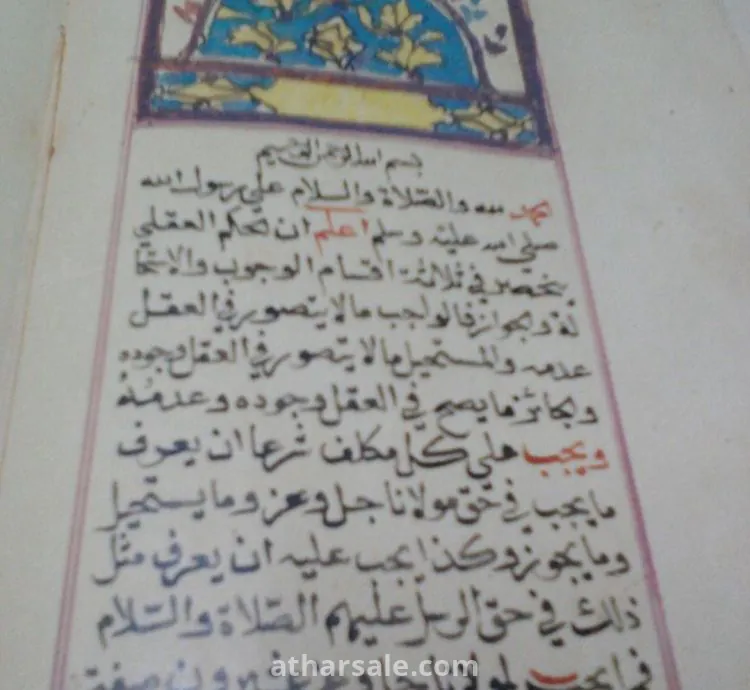 بسم الله الرحمن الرحيم
الحمد لله والصّلاة والسلام علي رسول الله
صلي الله عليه وسلم اعلم ان الحكم العقلي
ينحصر في ثلاثة اقسام الوجوب والاستحا
لة والجواز فالواجب مالا يتصور في العقل
عدمه والمستحيل مالا يتصور في العقل وجوده
والجائز ما يصح في العقل وجوده وعدمه
ويجب علي كل مكلف شرعا ان يعرف
ما يجب في حق مولانا جل وعز وما يستحيل
وما يجوز وكذا يجب عليه ان يعرف مثل
ذلك في حق الرسل عليهم الصّلاة والسّلام
فما يجب لمولانا جل وعز عشرون صفة
atharsale.com